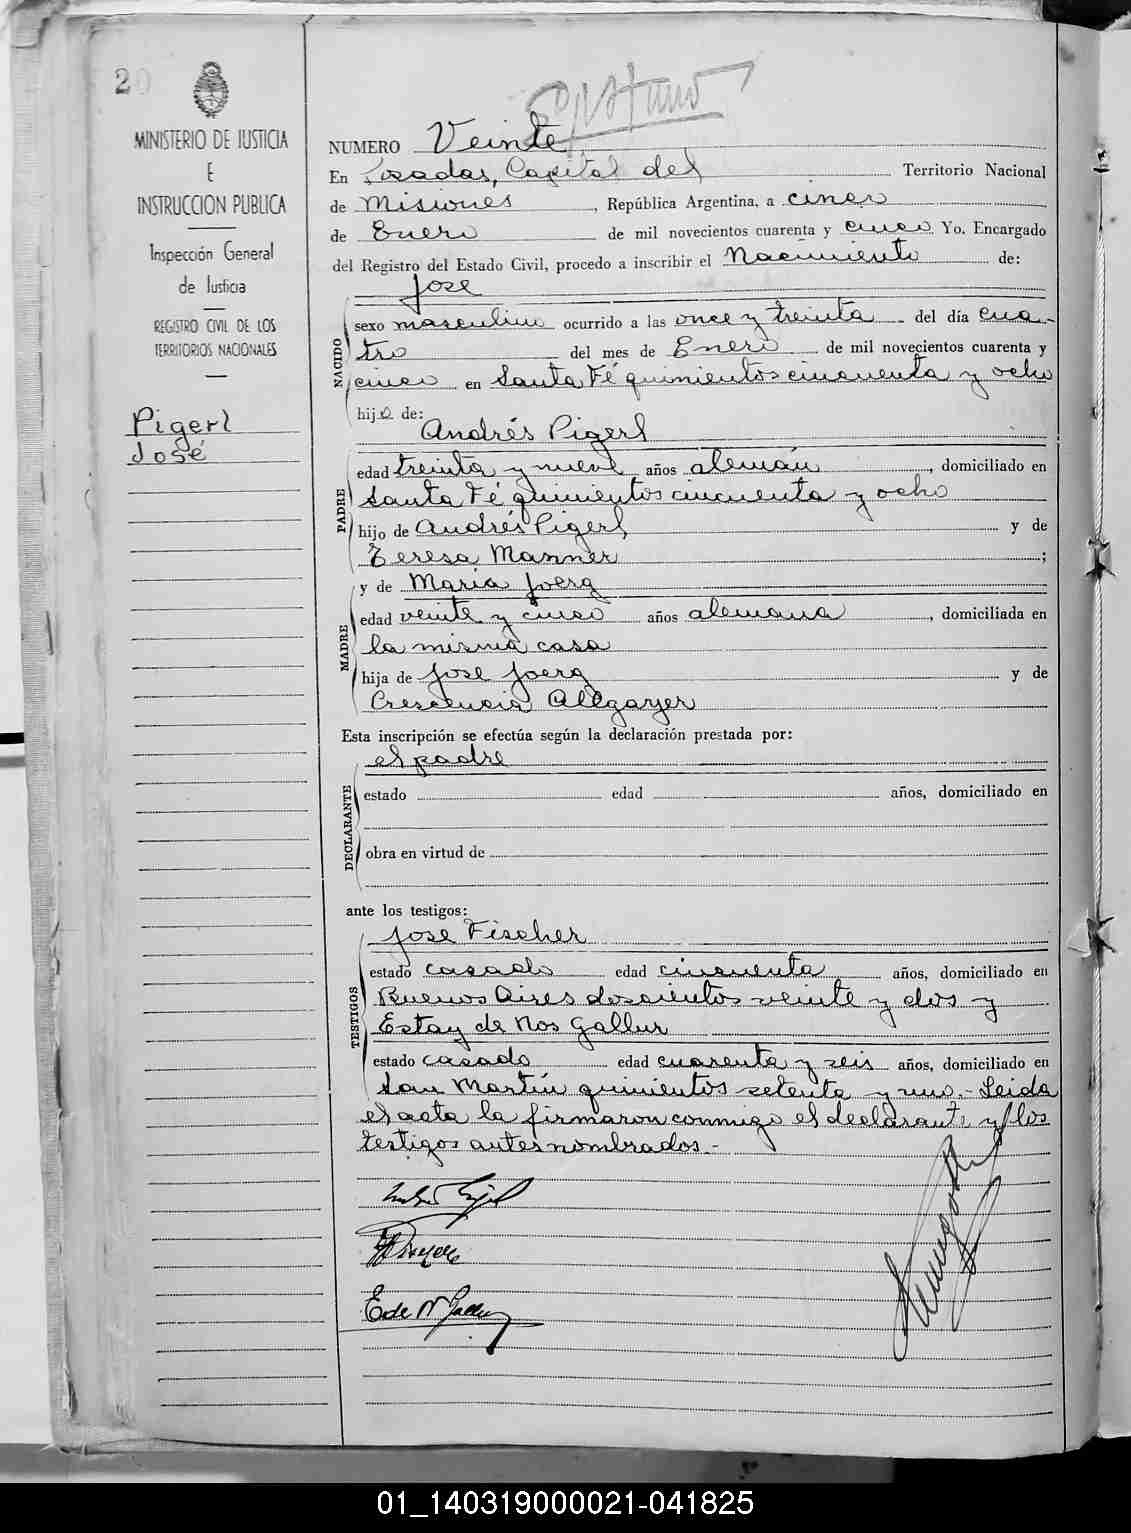 20
MINISTERIO DE JUSTICIA
E
INSTRUCCION PUBLICA
Inspección General
de Justicia
REGISTRO CIVIL DE LOS
TERRITORIOS NACIONALES
Pigerl
José
NUMERO Veinte
En Posadas, Capital del Territorio Nacional
de Misiones, República Argentina, a cinco
de Enero de mil novecientos cuarenta y cinco Yo. Encargado
del Registro del Estado Civil, procedo a inscribir el Nacimiento de:
Jose
NACIDO
sexo masculino ocurrido a las once y treinta del día cua-
tro del mes de Enero de mil novecientos cuarenta y
cinco en Santa Fé quinientos cincuenta y ocho
hijo de:
Andrés Pigerl
PADRE
edad treinta y nueve años alemán, domiciliado en
Santa Fé quinientos cincuenta y ocho
hijo de Andrés Pigerl y de
Teresa Manner;
y de Maria Joerg
MADRE
edad veinte y cinco años alemana, domiciliada en
la misma casa
hija de Jose Joerg y de
Crescencia Allgayer
Esta inscripción se efectúa según la declaración prestada por:
el padre
DECLARANTE
estado edad años, domiciliado en
obra en virtud de
ante los testigos:
Jose Fischer
TESTIGOS
estado casado edad cincuenta años, domiciliado en
Buenos Aires doscientos veinte y dos y
Estay de Nos Gallur
estado casado edad cuarenta y seis años, domiciliado en
San Martín quinientos setenta y uno.- Leida
el acta la firmaron conmigo el declarante y los
testigos antes nombrados.-
01_140319000021-041825